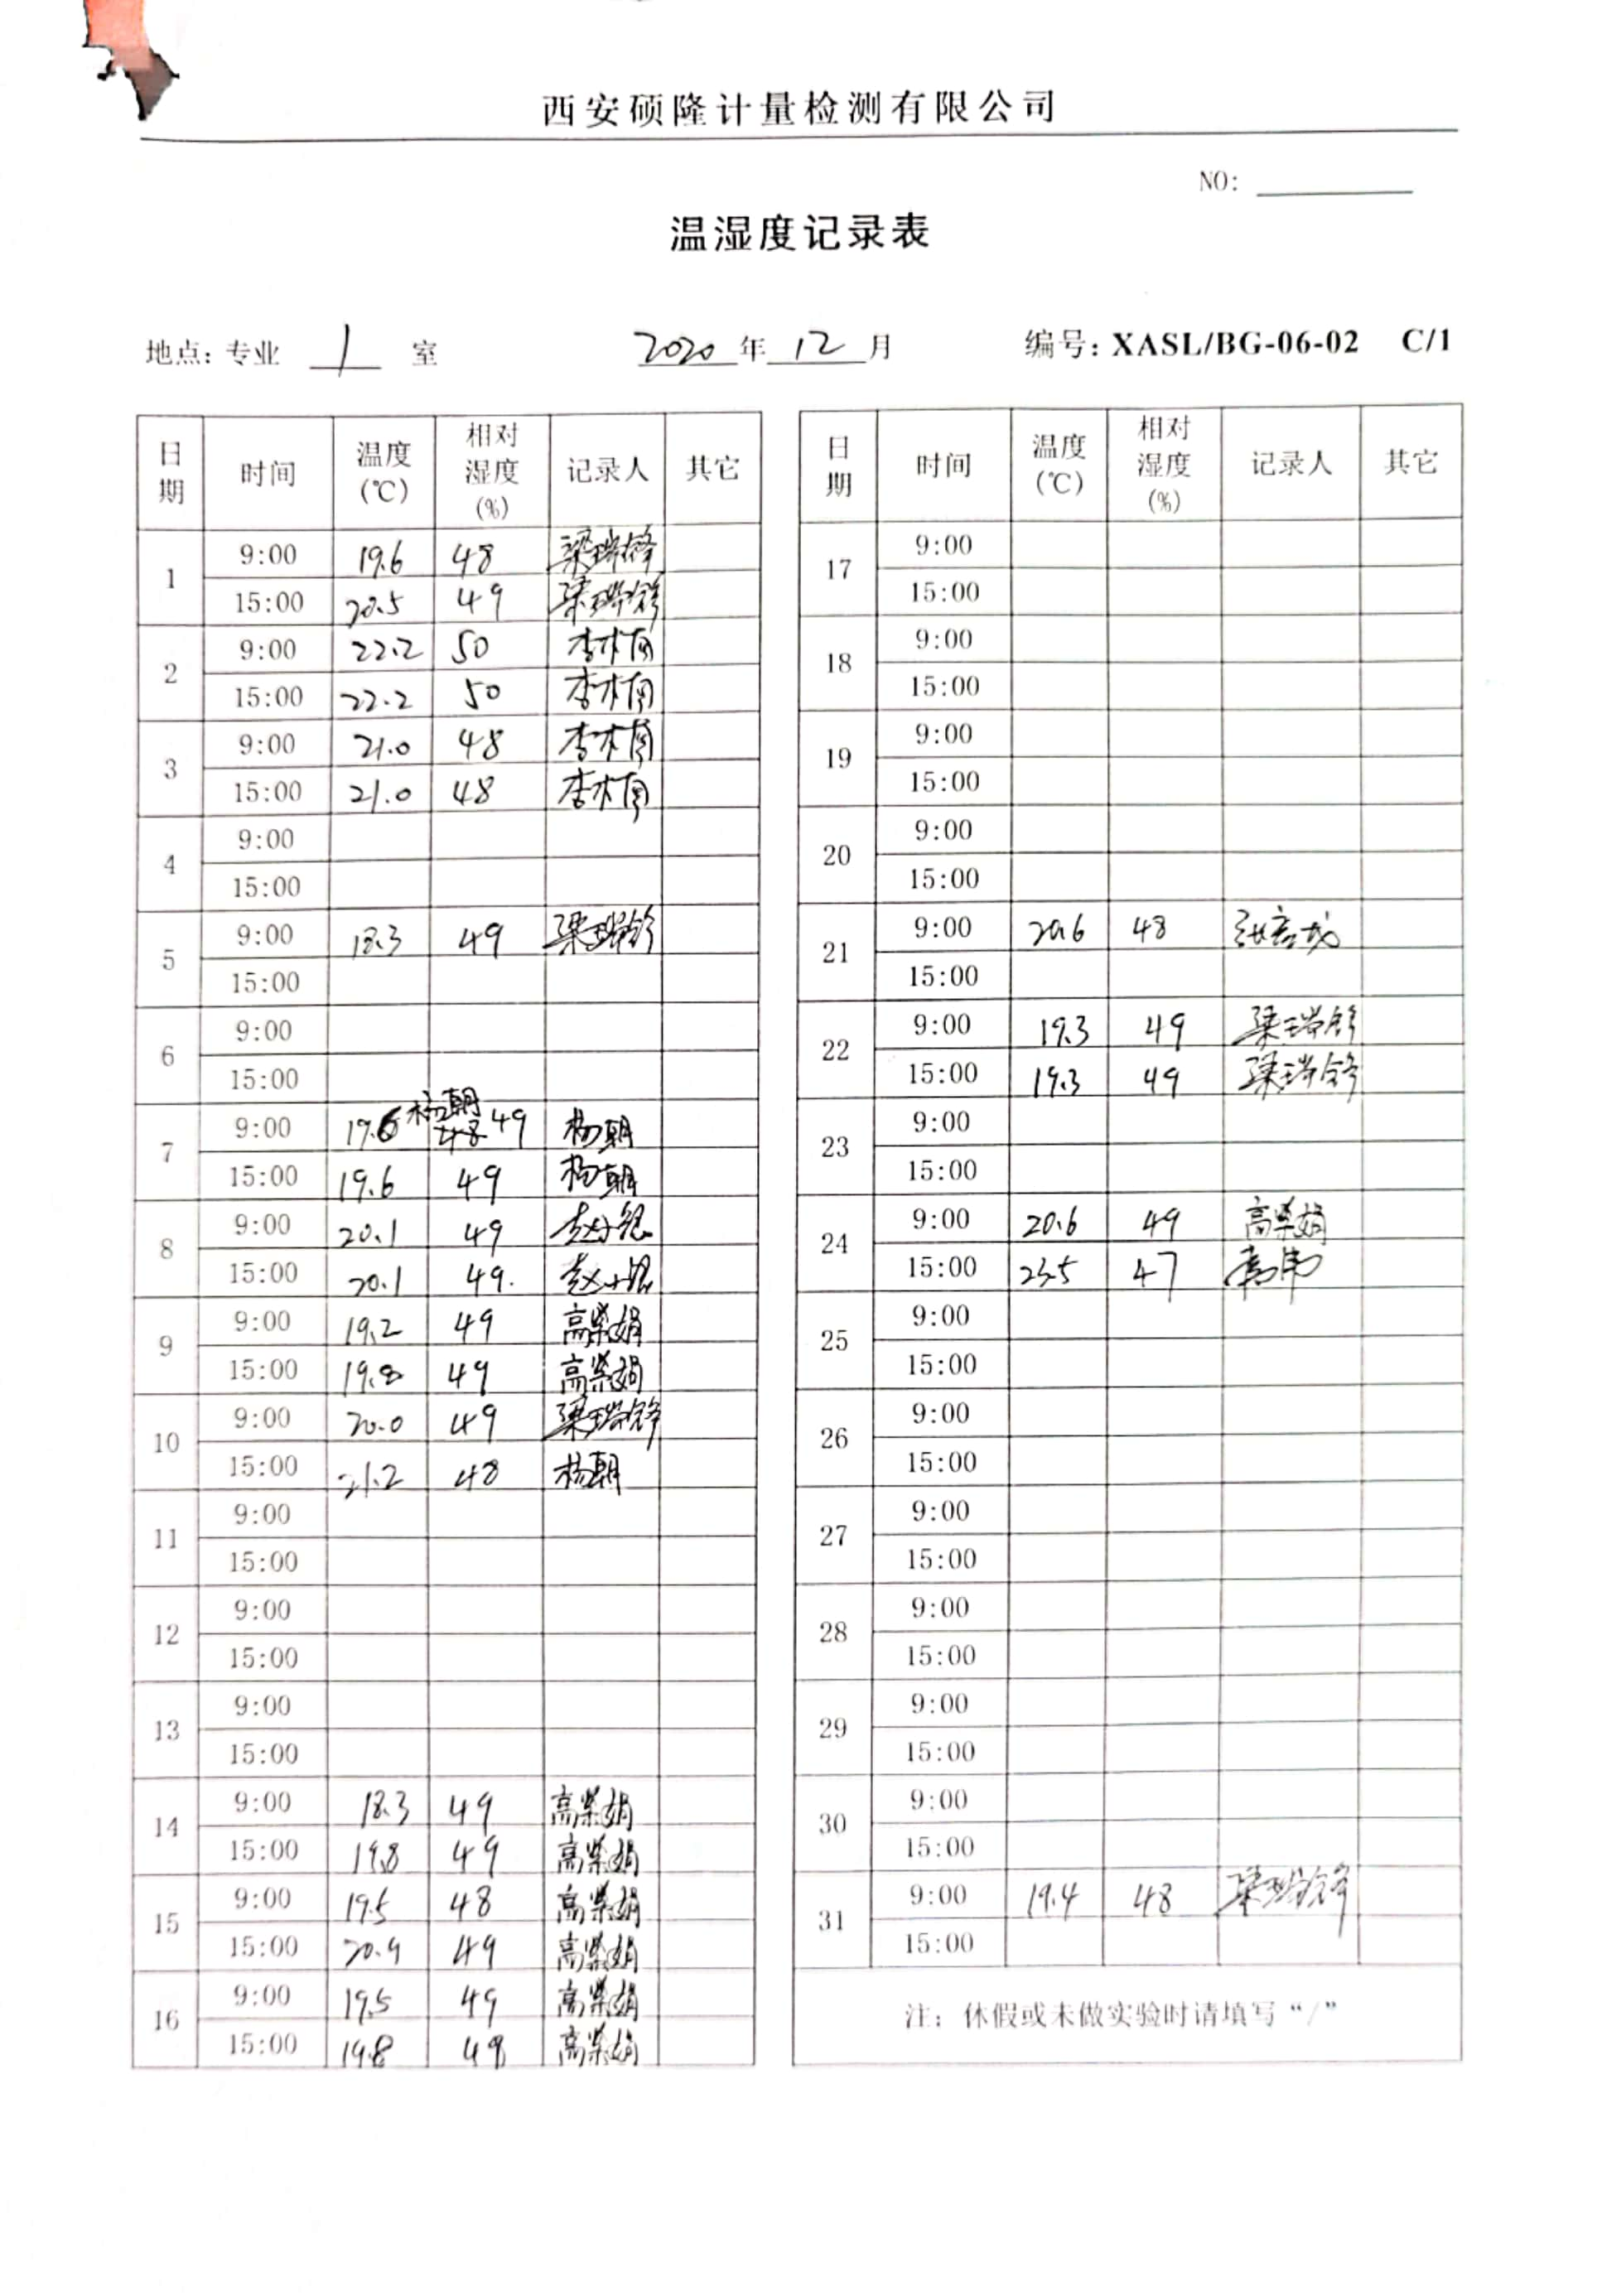 西安硕隆计量检测有限公司
NO:
温湿度记录表
地点: 专业 1 室 2020 年 12 月 编号: XASL/BG-06-02 C/1
日期 时间 温度(℃) 相对湿度(%) 记录人 其它
1 9:00 19.6 48 梁瑞锋
15:00 20.5 49 梁瑞锋
2 9:00 22.2 50
15:00 22.2 50
3 9:00 21.0 48
15:00 21.0 48
4 9:00
15:00
5 9:00 18.3 49 梁瑞锋
15:00
6 9:00
15:00
杨朝
7 9:00 19.6 48 49 杨朝
15:00 19.6 49 杨朝
8 9:00 20.1 49
15:00 20.1 49.
9 9:00 19.2 49 高紫娟
15:00 19.8 49 高紫娟
10 9:00 20.0 49 梁瑞锋
15:00 21.2 48 杨朝
11 9:00
15:00
12 9:00
15:00
13 9:00
15:00
14 9:00 18.3 49 高紫娟
15:00 19.8 49 高紫娟
15 9:00 19.5 48 高紫娟
15:00 20.9 49 高紫娟
16 9:00 19.5 49 高紫娟
15:00 19.8 49 高紫娟
日期 时间 温度(℃) 相对湿度(%) 记录人 其它
17 9:00
15:00
18 9:00
15:00
19 9:00
15:00
20 9:00
15:00
21 9:00 20.6 48
15:00
22 9:00 19.3 49 梁瑞锋
15:00 19.3 49 梁瑞锋
23 9:00
15:00
24 9:00 20.6 49 高紫娟
15:00 23.5 47
25 9:00
15:00
26 9:00
15:00
27 9:00
15:00
28 9:00
15:00
29 9:00
15:00
30 9:00
15:00
31 9:00 19.4 48 梁瑞锋
15:00
注: 休假或未做实验时请填写“/”